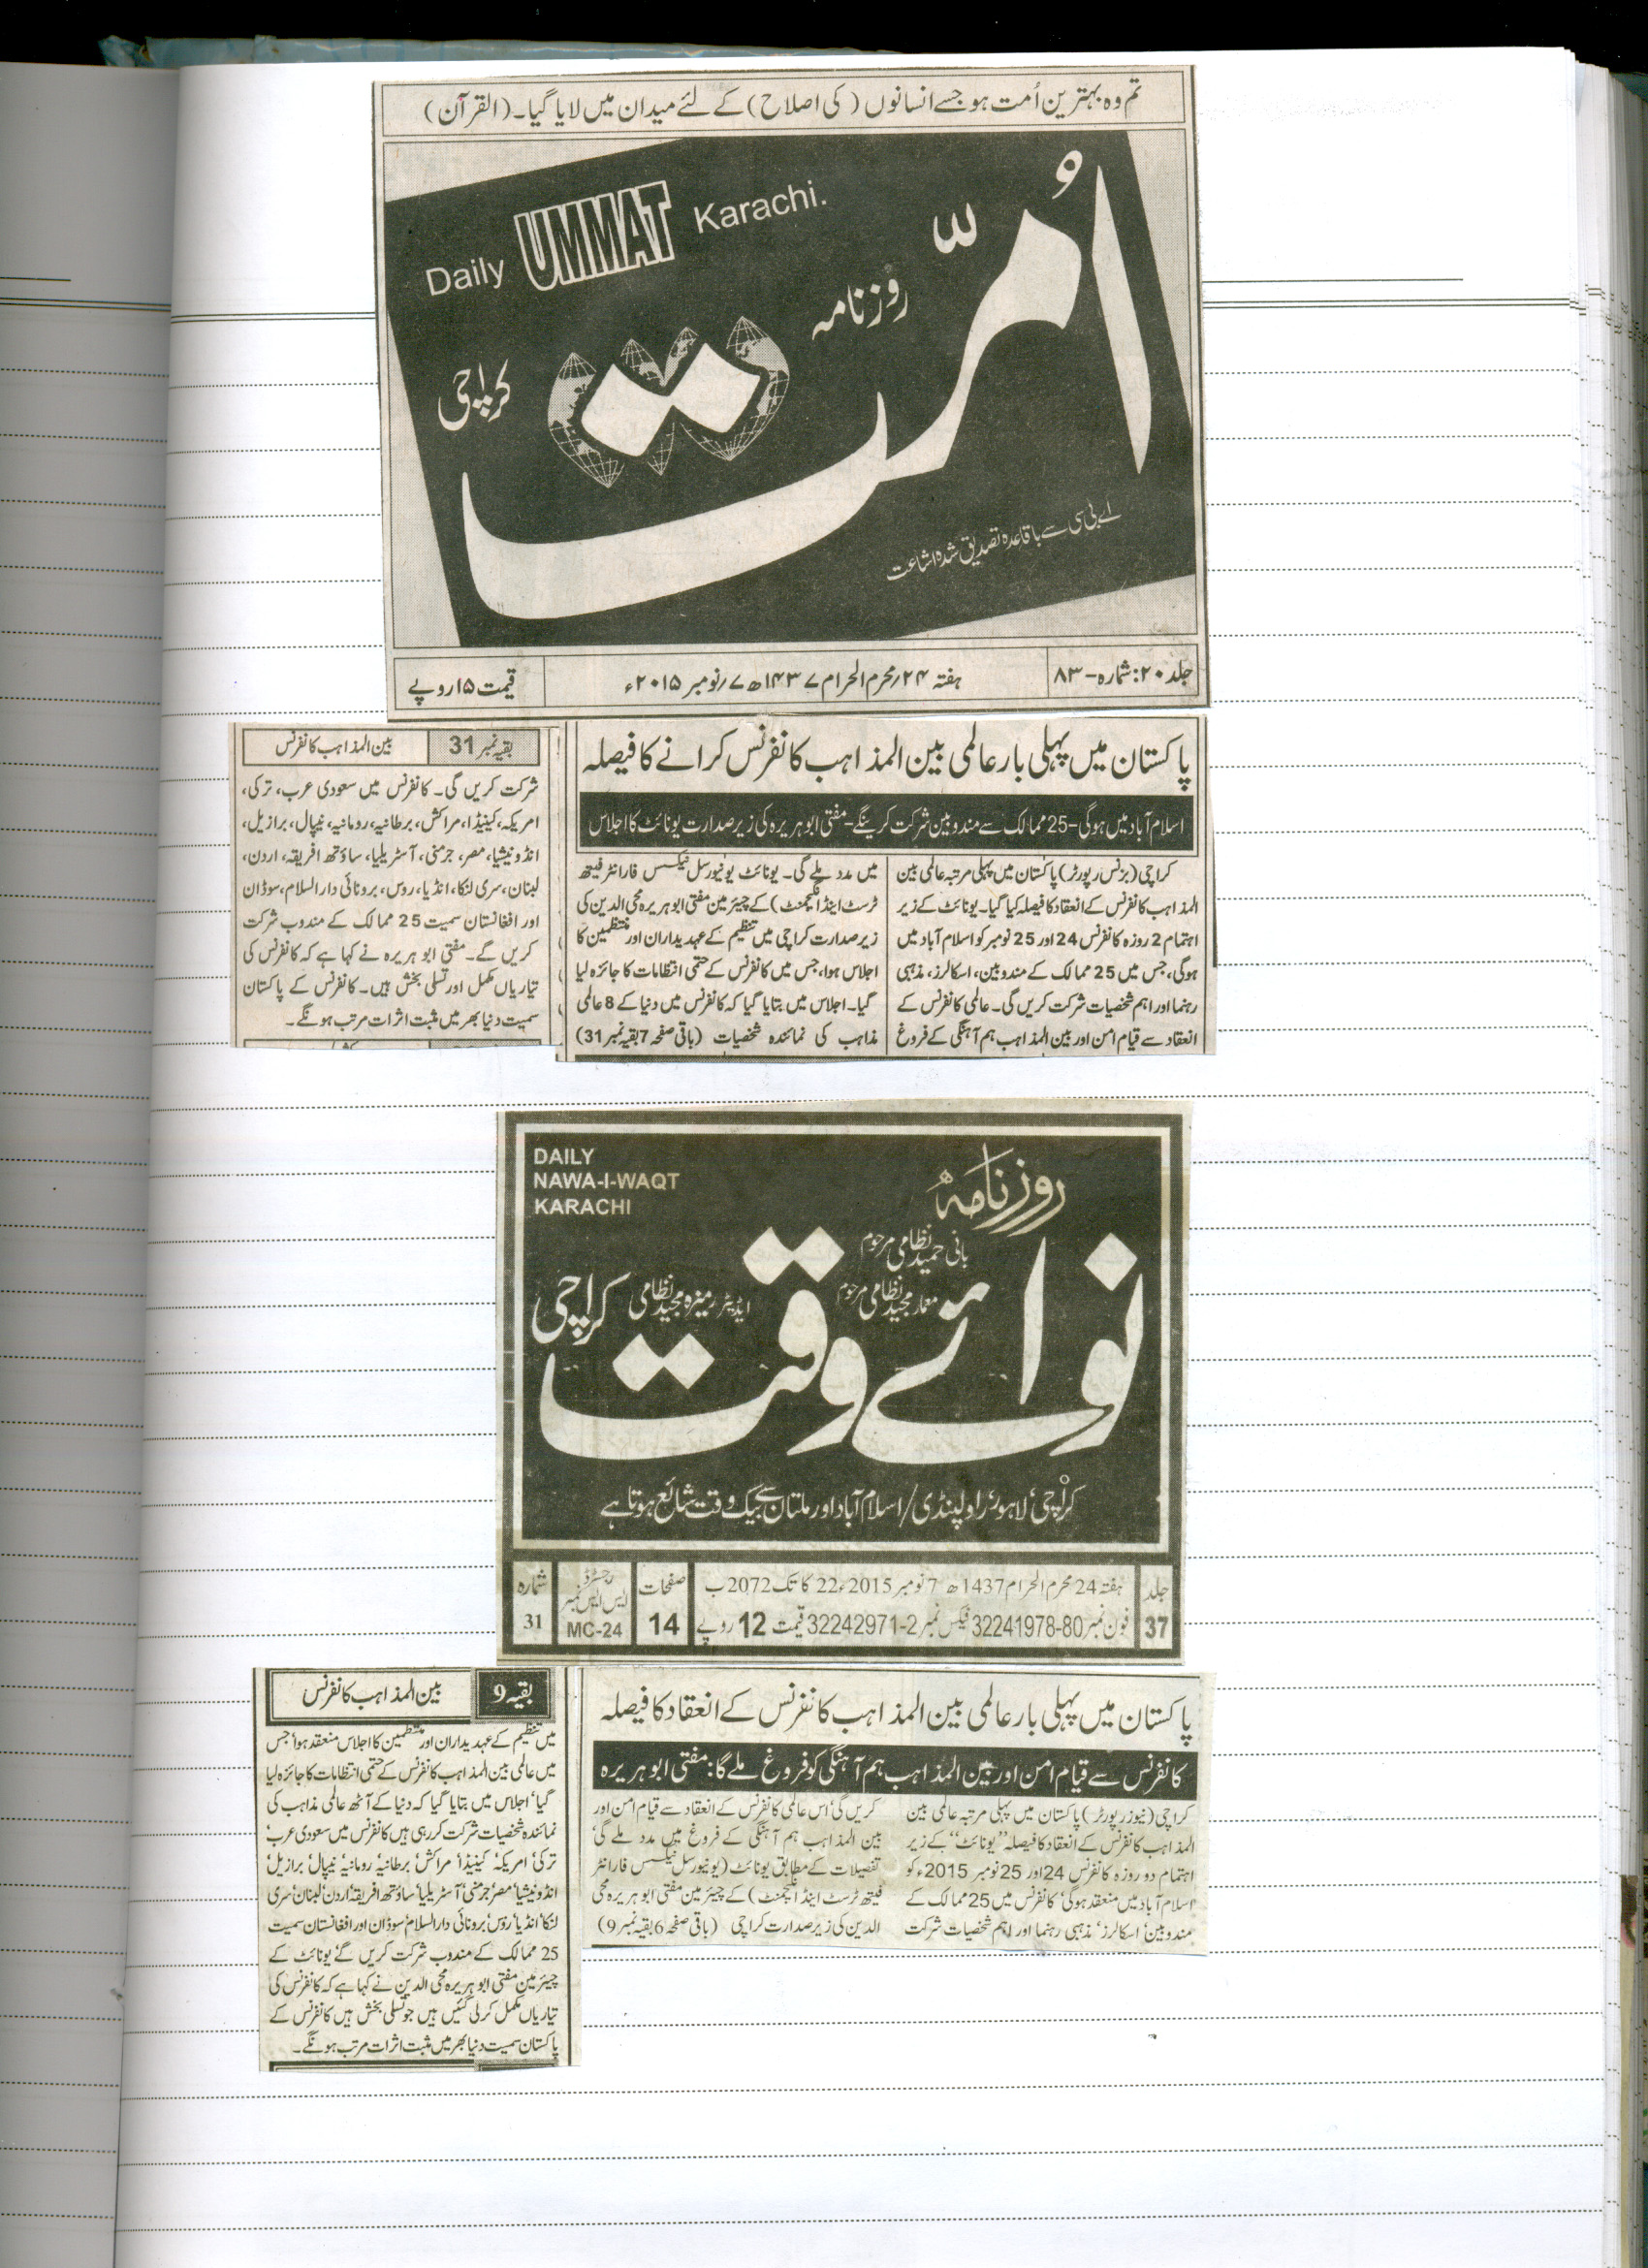 تم وہ بہترین اُمت ہو جسے انسانوں (کی اصلاح) کے لئے میدان میں لایا گیا۔ (القرآن)
Daily UMMAT Karachi.
روزنامہ
اُمّت
کراچی
اے بی سی سے باقاعدہ تصدیق شدہ اشاعت
جلد ۲۰: شمارہ - ۸۳
ہفتہ ۲۴؍محرم الحرام ۱۴۳۷ھ ۷؍نومبر ۲۰۱۵ء
قیمت ۱۵ روپے
پاکستان میں پہلی بار عالمی بین المذاہب کانفرنس کرانے کا فیصلہ
اسلام آباد میں ہوگی-25 ممالک سے مندوبین شرکت کرینگے-مفتی ابو ہریرہ کی زیر صدارت یونائٹ کا اجلاس
کراچی (بزنس رپورٹر) پاکستان میں پہلی مرتبہ عالمی بین
المذاہب کانفرنس کے انعقاد کا فیصلہ کیا گیا۔ یونائٹ کے زیر
اہتمام 2 روزہ کانفرنس 24 اور 25 نومبر کو اسلام آباد میں
ہوگی، جس میں 25 ممالک کے مندوبین، اسکالرز، مذہبی
رہنما اور اہم شخصیات شرکت کریں گی۔ عالمی کانفرنس کے
انعقاد سے قیام امن اور بین المذاہب ہم آہنگی کے فروغ
میں مدد ملے گی۔ یونائٹ یونیورسل نیکسس فار انٹر فیتھ
ٹرسٹ اینڈ انگیجمنٹ) کے چیئرمین مفتی ابو ہریرہ محی الدین کی
زیر صدارت کراچی میں تنظیم کے عہدیداران اور منتظمین کا
اجلاس ہوا، جس میں کانفرنس کے حتمی انتظامات کا جائزہ لیا
گیا۔ اجلاس میں بتایا گیا کہ کانفرنس میں دنیا کے 8 عالمی
مذاہب کی نمائندہ شخصیات (باقی صفحہ 7 بقیہ نمبر 31)
بقیہ نمبر 31 بین المذاہب کانفرنس
شرکت کریں گی۔ کانفرنس میں سعودی عرب، ترکی،
امریکہ، کینیڈا، مراکش، برطانیہ، رومانیہ، نیپال، برازیل،
انڈونیشیا، مصر، جرمنی، آسٹریلیا، ساؤتھ افریقہ، اردن،
لبنان، سری لنکا، انڈیا، روس، برونائی دارالسلام، سوڈان
اور افغانستان سمیت 25 ممالک کے مندوب شرکت
کریں گے۔ مفتی ابو ہریرہ نے کہا ہے کہ کانفرنس کی
تیاریاں مکمل اور تسلی بخش ہیں۔ کانفرنس کے پاکستان
سمیت دنیا بھر میں مثبت اثرات مرتب ہونگے۔
DAILY
NAWA-I-WAQT
KARACHI
روزنامہ
بانی حمید نظامی مرحوم
معمار مجید نظامی مرحوم
ایڈیٹر رمیزہ مجید نظامی
نوائے وقت
کراچی
کراچی، لاہور، راولپنڈی/اسلام آباد اور ملتان سے بیک وقت شائع ہوتا ہے
جلد 37
ہفتہ 24 محرم الحرام 1437ھ 7 نومبر 2015ء، 22 کاتک 2072ب
فون نمبر 80-32241978 فیکس نمبر 2-32242971 قیمت 12 روپے
صفحات 14
رجسٹرڈ ایس ایس نمبر MC-24
شمارہ 31
پاکستان میں پہلی بار عالمی بین المذاہب کانفرنس کے انعقاد کا فیصلہ
کانفرنس سے قیام امن اور بین المذاہب ہم آہنگی کو فروغ ملے گا: مفتی ابو ہریرہ
کراچی (نیوز رپورٹر) پاکستان میں پہلی مرتبہ عالمی بین
المذاہب کانفرنس کے انعقاد کا فیصلہ "یونائٹ" کے زیر
اہتمام دو روزہ کانفرنس 24 اور 25 نومبر 2015ء کو
اسلام آباد میں منعقد ہوگی، کانفرنس میں 25 ممالک کے
مندوبین، اسکالرز، مذہبی رہنما اور اہم شخصیات شرکت
کریں گی، اس عالمی کانفرنس کے انعقاد سے قیام امن اور
بین المذاہب ہم آہنگی کے فروغ میں مدد ملے گی،
تفصیلات کے مطابق یونائٹ (یونیورسل نیکسس فار انٹر
فیتھ ٹرسٹ اینڈ انگیجمنٹ) کے چیئرمین مفتی ابو ہریرہ محی
الدین کی زیر صدارت کراچی (باقی صفحہ 6 بقیہ نمبر 9)
بقیہ 9 بین المذاہب کانفرنس
میں تنظیم کے عہدیداران اور منتظمین کا اجلاس منعقد ہوا، جس
میں عالمی بین المذاہب کانفرنس کے حتمی انتظامات کا جائزہ لیا
گیا، اجلاس میں بتایا گیا کہ دنیا کے آٹھ عالمی مذاہب کی
نمائندہ شخصیات شرکت کر رہی ہیں کانفرنس میں سعودی عرب،
ترکی، امریکہ، کینیڈا، مراکش، برطانیہ، رومانیہ، نیپال، برازیل،
انڈونیشیا، مصر، جرمنی، آسٹریلیا، ساؤتھ افریقہ، اردن، لبنان، سری
لنکا، انڈیا، روس، برونائی دارالسلام، سوڈان اور افغانستان سمیت
25 ممالک کے مندوب شرکت کریں گے، یونائٹ کے
چیئرمین مفتی ابو ہریرہ محی الدین نے کہا ہے کہ کانفرنس کی
تیاریاں مکمل کر لی گئیں ہیں جو تسلی بخش ہیں کانفرنس کے
پاکستان سمیت دنیا بھر میں مثبت اثرات مرتب ہونگے۔